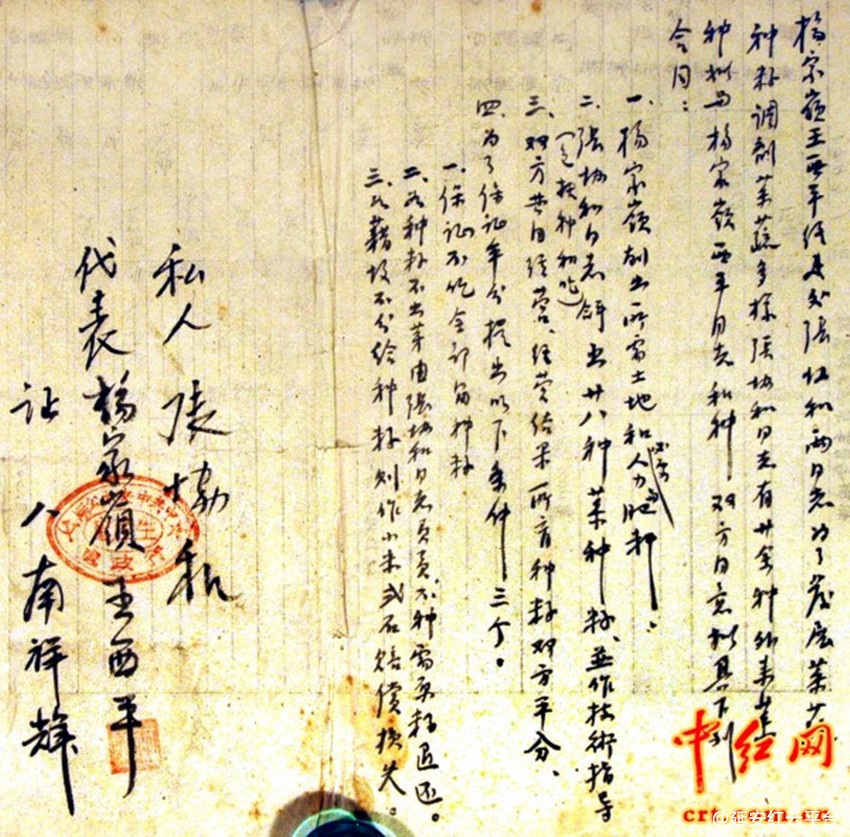 杨家岭王西平 张协和两同志为了发展菜
种籽调剂菜蔬多样张协和同志有廿余种外来菜
种拟与杨家岭西平同志和种 双方同意拟具下列
合同：
一、杨家岭划出所需土地和人力肥料；
二、张协和同志 出廿八种菜种籽、并作技术指导
三、双方共同经营、经营结果所有种籽双方平分、
四、为了保证平分提出以下条件三个。
一、保证不吃全部留种籽
二、如种籽不出芽由张协和同志负责、不种需要籽退还。
三、如藉故不分给种籽则作小米 石赔偿损失。
私人 张协和
代表 杨家岭 王西平
证人 南祥辉
中红网
crt.com.cn
@延安红云平台